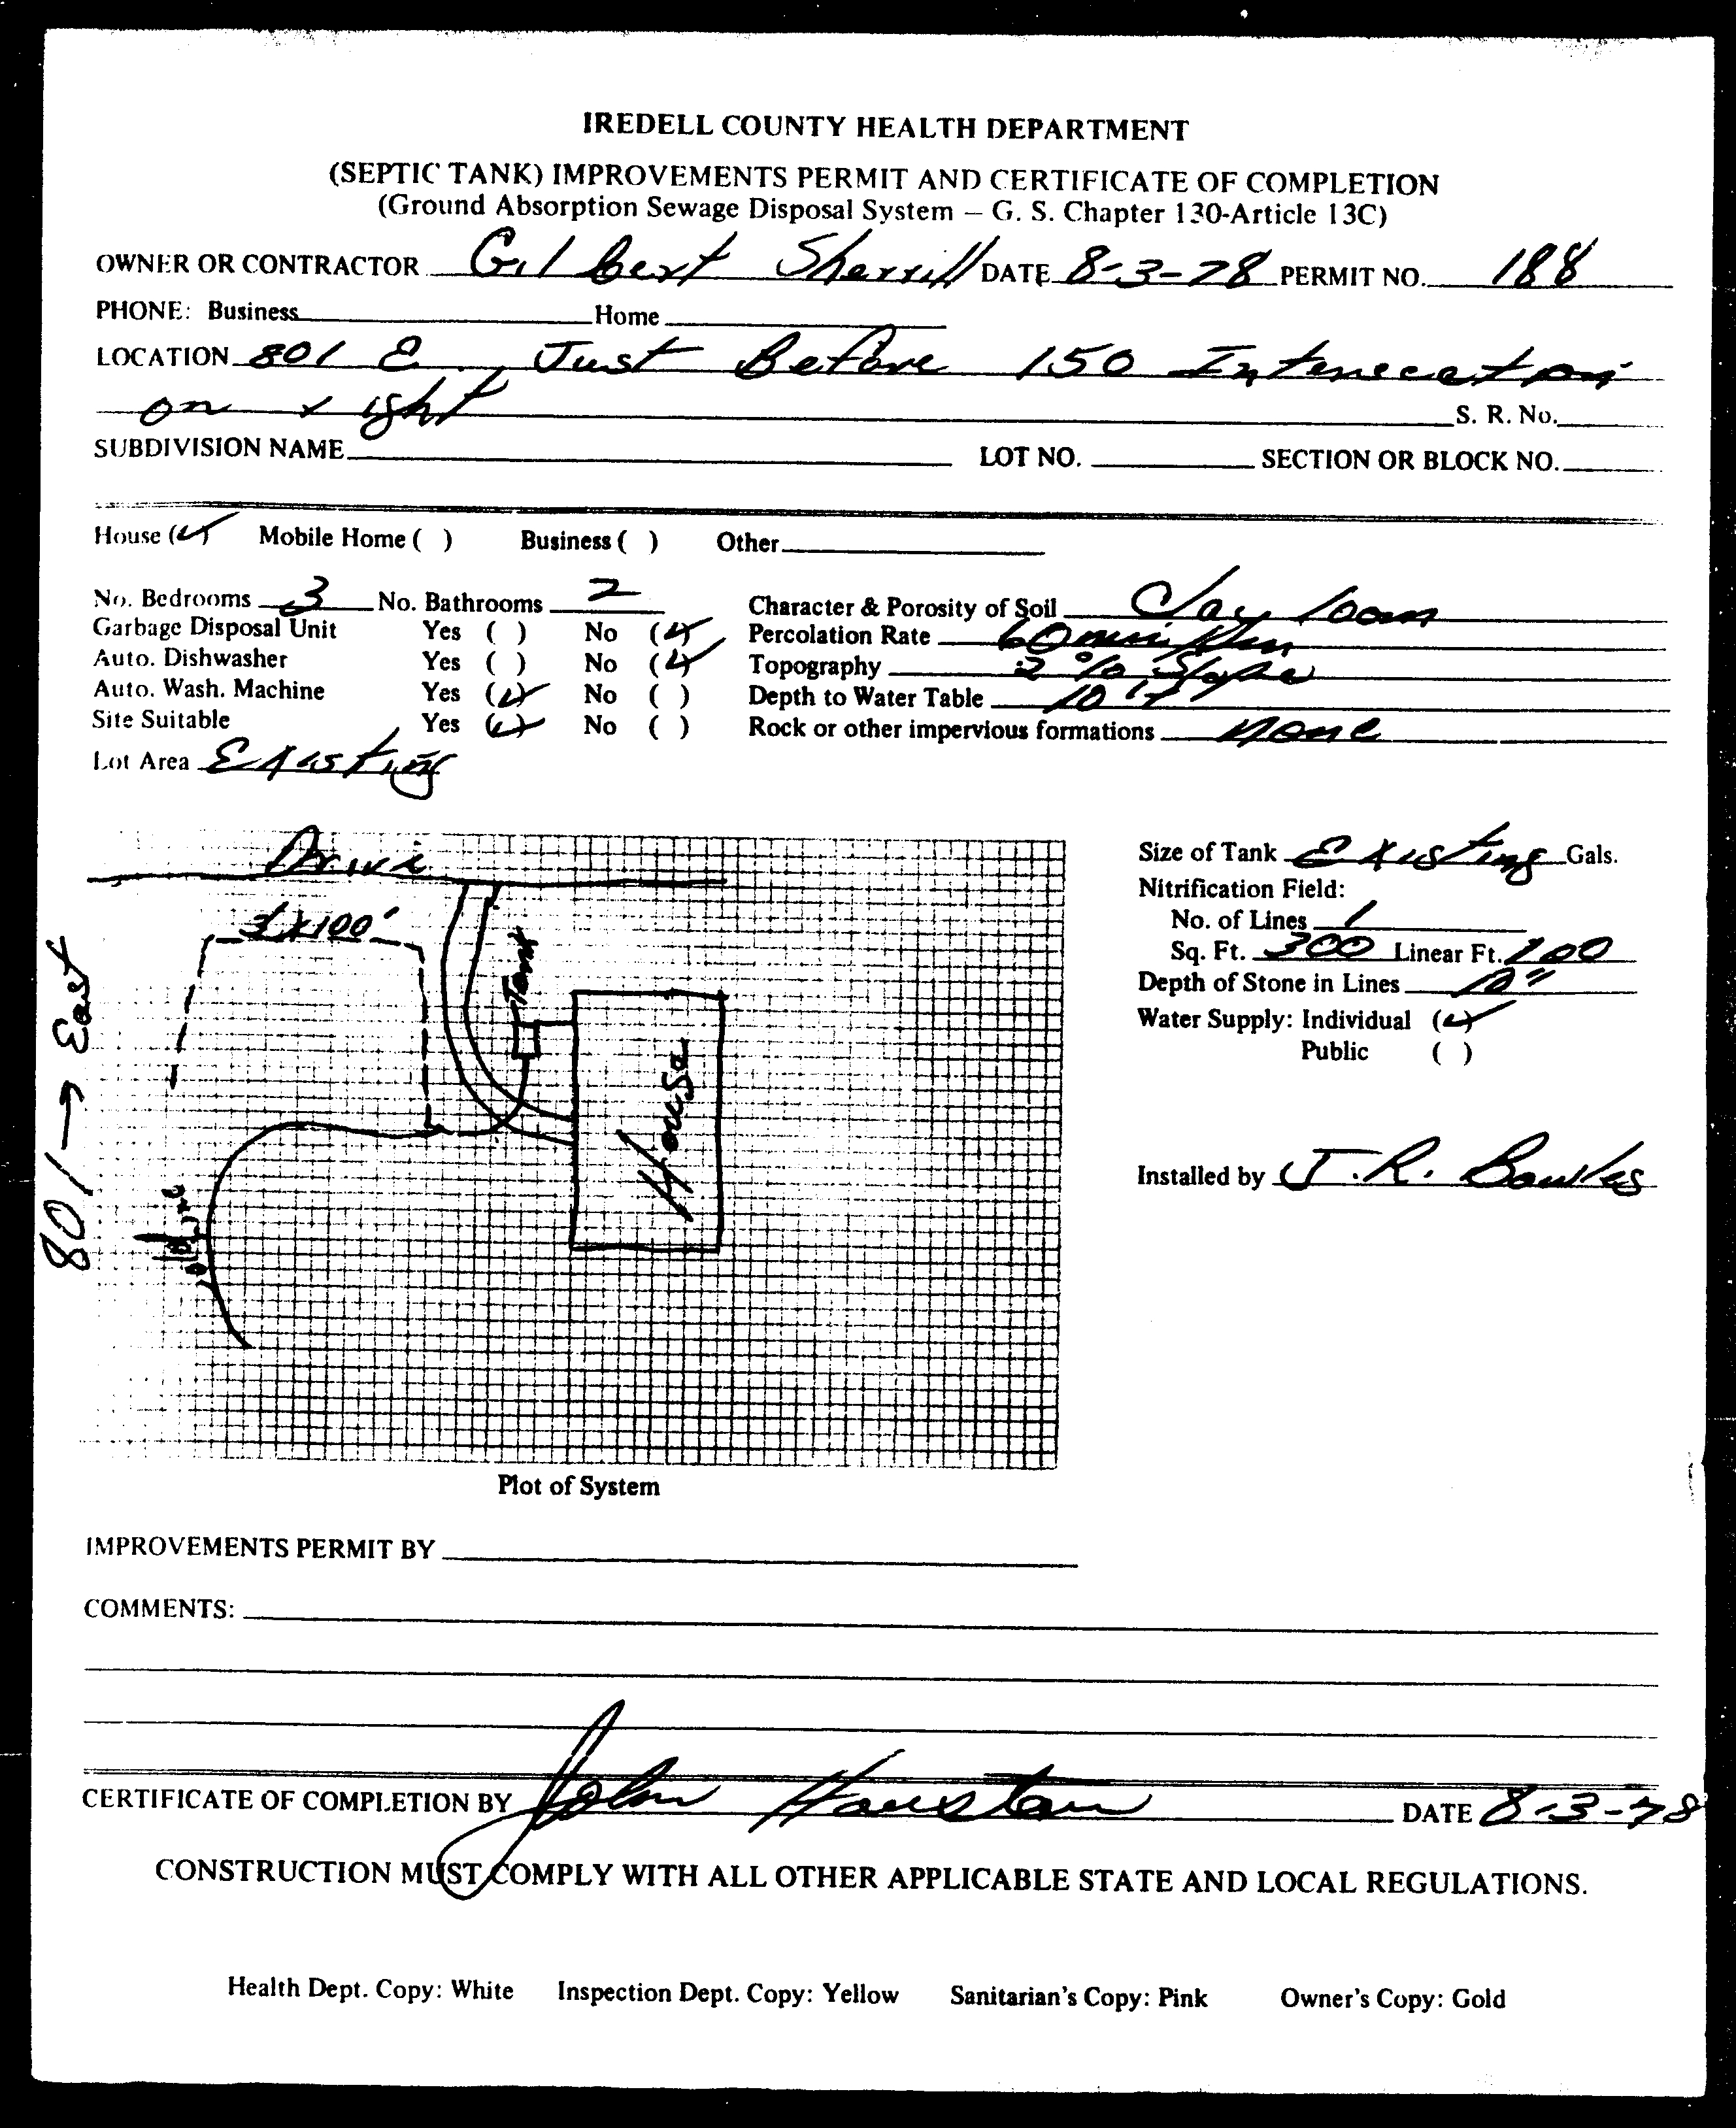 IREDELL COUNTY HEALTH DEPARTMENT
(SEPTIC TANK) IMPROVEMENTS PERMIT AND CERTIFICATE OF COMPLETION
(Ground Absorption Sewage Disposal System – G. S. Chapter 130-Article 13C)
OWNER OR CONTRACTOR Gilbert Sherrill DATE 8-3-78 PERMIT NO. 188
PHONE: Business Home
LOCATION 801 E, Just Before 150 Intersection
on right S. R. No.
SUBDIVISION NAME LOT NO. SECTION OR BLOCK NO.
House (✓) Mobile Home ( ) Business ( ) Other
No. Bedrooms 3 No. Bathrooms 2 Character & Porosity of Soil Clay loam
Garbage Disposal Unit Yes ( ) No (✓) Percolation Rate 60 min/
Auto. Dishwasher Yes ( ) No (✓) Topography 2% Slope
Auto. Wash. Machine Yes (✓) No ( ) Depth to Water Table 10'+
Site Suitable Yes (✓) No ( ) Rock or other impervious formations none
Lot Area Existing
Drive
3'x100'
Tank
House
801 → East
old line
Size of Tank Existing Gals.
Nitrification Field:
No. of Lines 1
Sq. Ft. 300 Linear Ft. 100
Depth of Stone in Lines 12"
Water Supply: Individual (✓)
Public ( )
Installed by J.R. Bowles
Plot of System
IMPROVEMENTS PERMIT BY
COMMENTS:
CERTIFICATE OF COMPLETION BY John Houston DATE 8-3-78
CONSTRUCTION MUST COMPLY WITH ALL OTHER APPLICABLE STATE AND LOCAL REGULATIONS.
Health Dept. Copy: White Inspection Dept. Copy: Yellow Sanitarian's Copy: Pink Owner's Copy: Gold